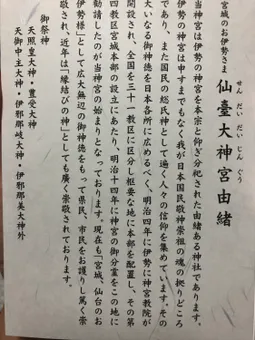 宮城のお伊勢さま
仙臺大神宮由緒
せんだいだいじんぐう
当神宮は伊勢の神宮を本宗と仰ぎ分祀された由緒ある神社であります。
伊勢の神宮は申すまでもなく我が日本国民敬神崇祖の魂の拠りどころ
であり、また国民の総氏神として遍く人々の信仰を集めています。その
大いなる御神徳を日本各所に広めるべく、明治四年に伊勢に神宮教院が
開設され、全国を三十一教区に区分し枢要な地に本部を配置し、その第
四教区宮城本部の設立にあたり、明治十四年に神宮の御分霊をこの地に
勧請したのが当神宮の始まりとなっております。現在も「宮城、仙台のお
伊勢様」として広大無辺の御神徳をもって県民、市民をお護りし篤く崇
敬され、近年は「縁結びの神」としても廣く崇敬されております。
御祭神
天照皇大神・豊受大神
天御中主大神・伊邪那岐大神・伊邪那美大神外